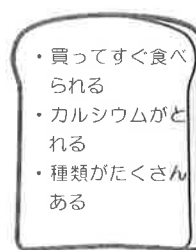 ・買ってすぐ食べ
られる
・カルシウムがと
れる
・種類がたくさん
ある